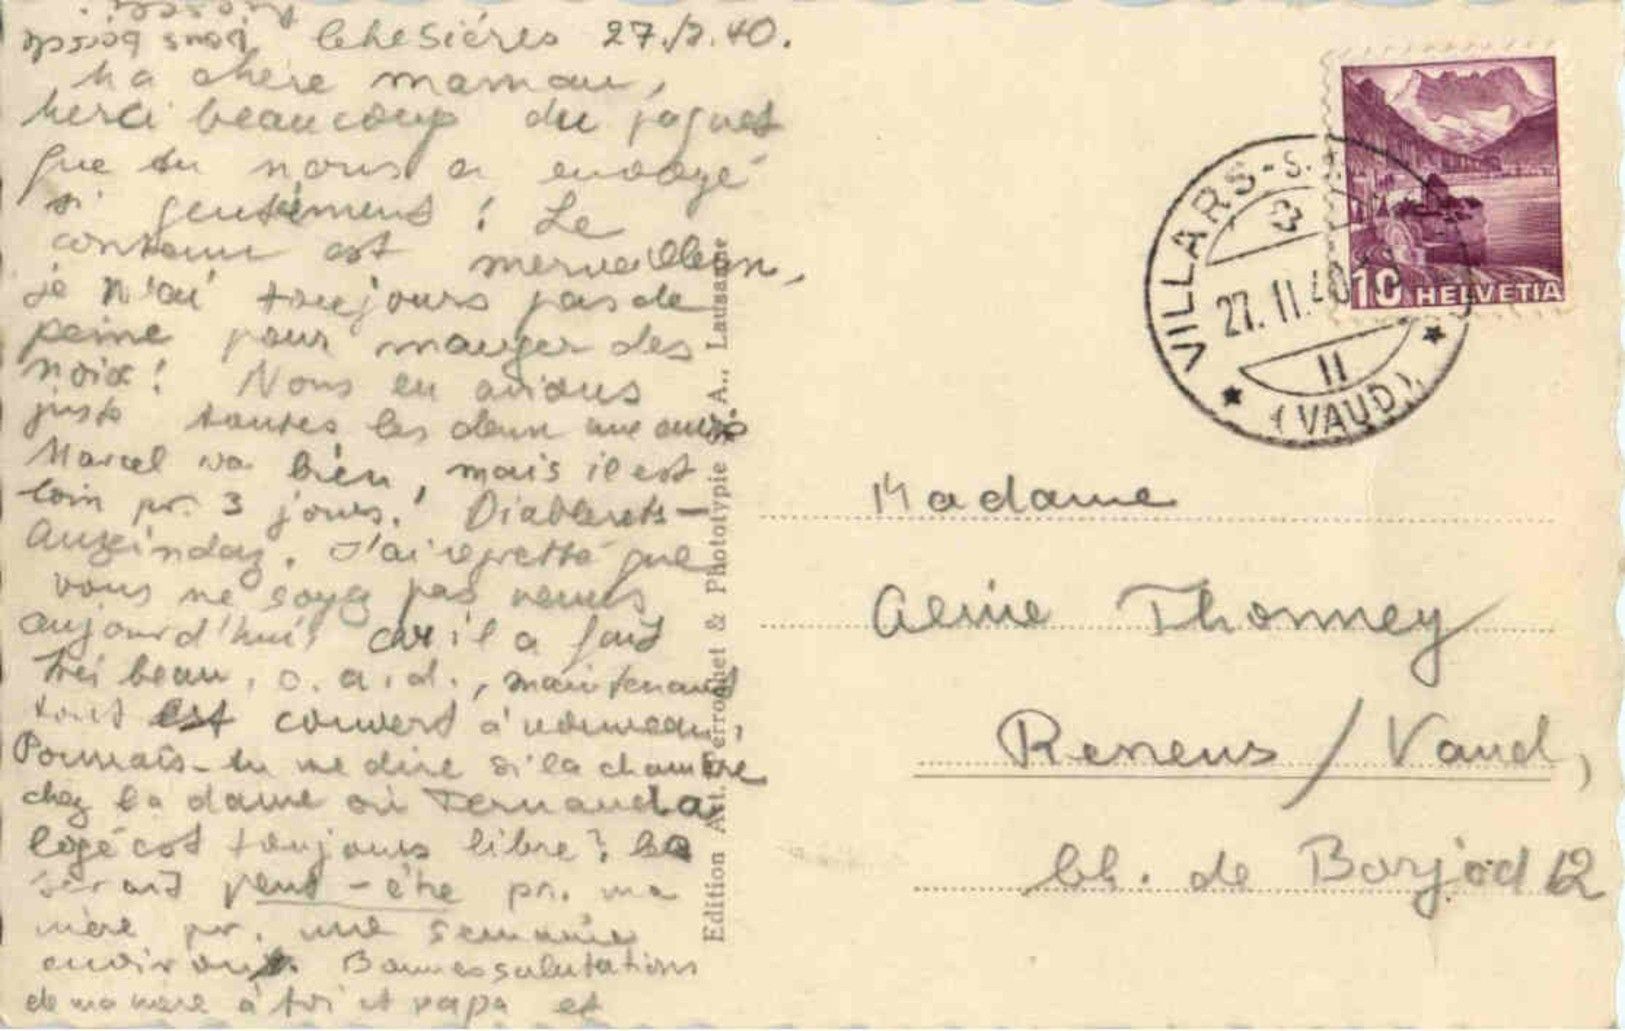 Chesières 27./2.40.
Ma chère maman,
Merci beaucoup du paquet
que tu nous a envoyé
si gentiment ! Le
contenu est merveilleux,
je n'ai toujours pas de
peine pour manger des
noix! Nous en avions
juste toutes les deux une
Marcel va bien, mais il est
loin pr. 3 jours. ! Diablerets –
Anzeindaz. J'ai regretté que
vous ne soyez pas venus
aujourd'hui car il a fait
très beau, c.a.d., maintenant
tout est couvert à nouveau,
Pourrais-tu me dire si la chambre
chez la dame où Fernand a
logé est toujours libre?
serait peut-être pr. ma
mère pr. une semaine
environ. Bonnes salutations
de ma mère à toi et papa et
bons baisers
Edition Art. Perrochet & Phototypie S. A., Lausanne
VILLARS-S.
27.II.40
II
(VAUD)
10 HELVETIA
Madame
Aline Thonney
Renens / Vaud,
Ch. de Borjod 12